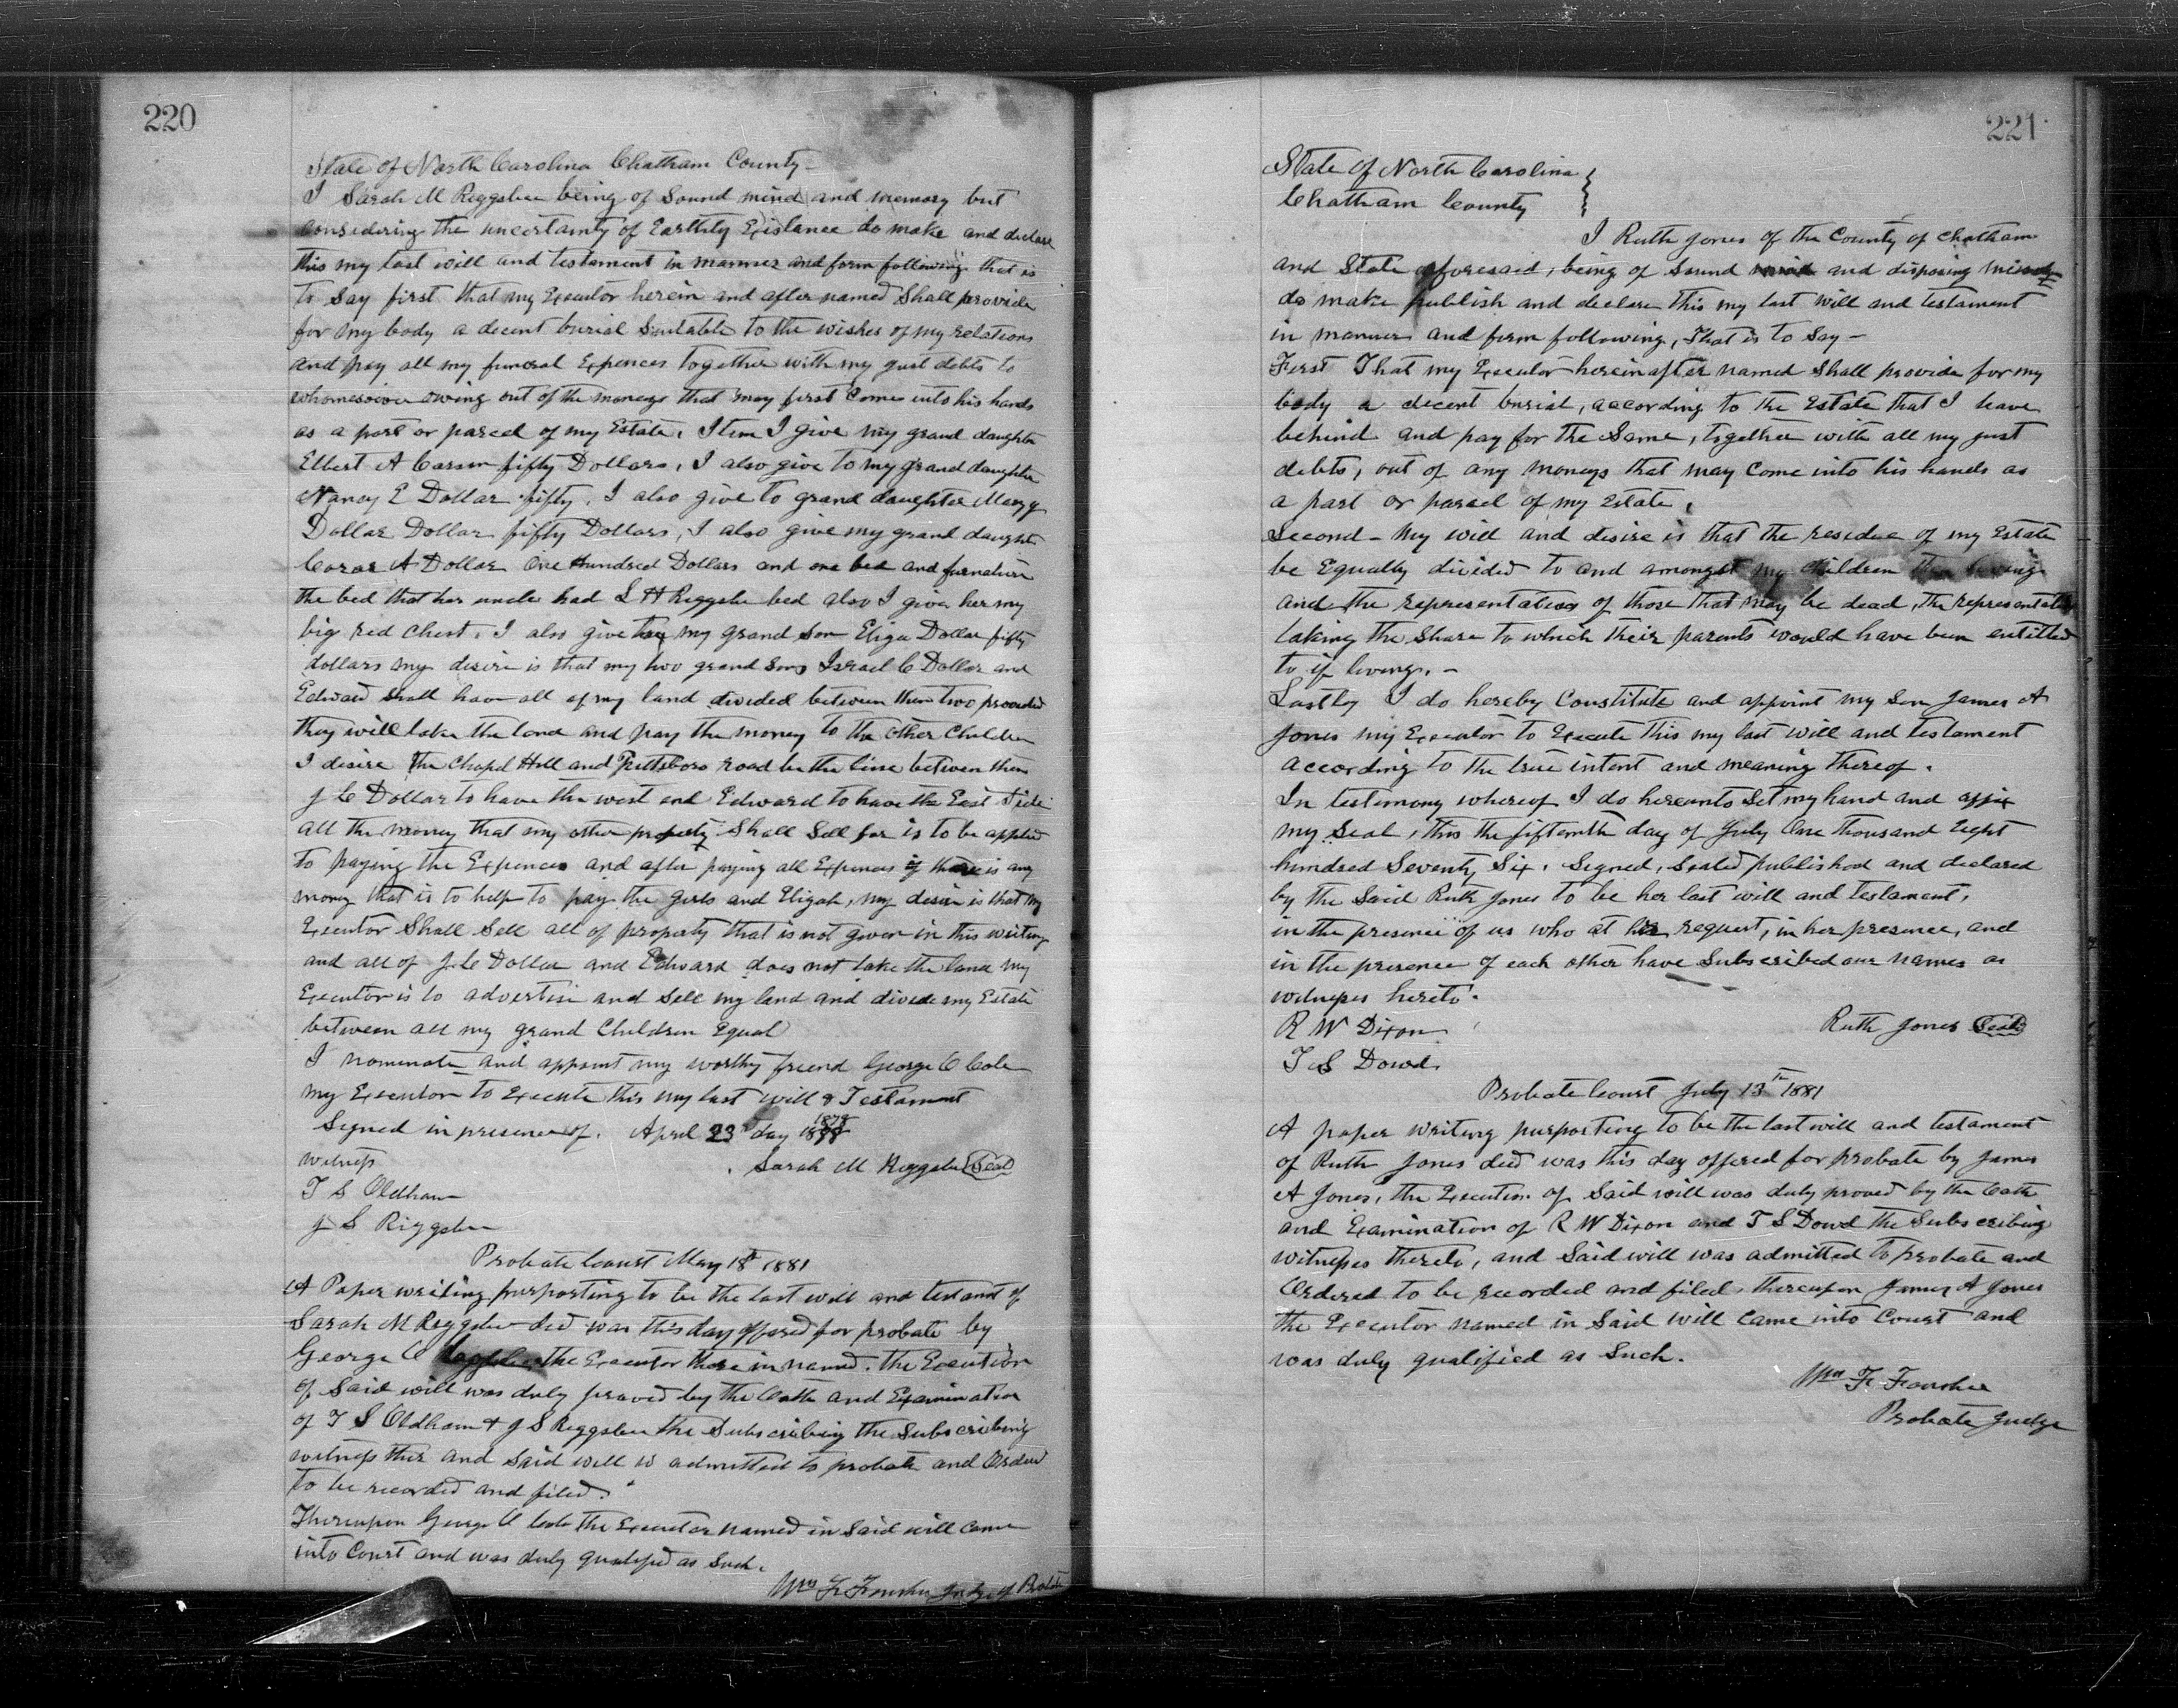 220
State of North Carolina Chatham County
I Sarah M Riggsbee being of Sound mind and memory but
considering the uncertainty of Earthly Existance do make and declare
this my last will and testament in manner and form following that is
to Say first that my Executor herein and after named Shall provide
for my body a decent burial Suitable to the wishes of my relations
and pay all my funeral Expences together with my just debts to
whomesoever owing out of the moneys that may first Come into his hands
as a part or parcel of my Estate. Item I give my grand daughter
Elbert A Carson fifty Dollars, I also give to my grand daughter
Nancy E Dollar fifty. I also give to grand daughter Mary
Dollar Dollar fifty Dollars, I also give my grand daughter
Coras A Dollar One Hundred Dollars and one bed and furnature
the bed that her uncle had L H Riggsbee bed also I give her my
big red Chest. I also give my grand Son Eliga Dollar fifty
dollars my desire is that my two grand Sons Israel C Dollar and
Edward Shall have all of my land divided between them two provided
they will take the land and pay the money to the other Children
I desire the Chapel Hill and Pittsboro road be the line between them
J C Dollar to have the west and Edward to have the East Side
all the money that my other property Shall Sell for is to be applied
to paying the Expences and after paying all Expences if there is any
money that is to help to pay the girls and Elijah, my desire is that my
Executor Shall Sell all of property that is not given in this writing
and all of J. C Dollar and Edward does not take the land my
Executor is to advertise and Sell my land and divide my Estate
between all my grand Children Equal
I nominate and appoint my worthy friend George C Cole
my Executor to Execute this my last will & Testament
Signed in presence of. April 23 day 1878
witness
Sarah M Riggsbee (Seal)
T S Oldham
J S Riggsbee
Probate Court May 18th 1881
A Paper writing purporting to be the last will and testamt of
Sarah M Riggsbee decd was this day offered for probate by
George the Executor there in named. the Execution
of Said will was duly proved by the Oath and Examination
of T S Oldham & J S Riggsbee the Subscribing the Subscribing
witness ther and Said will is admitted to probate and Orderd
to be recorded and filed.
Thereupon George C Cole the Executor named in Said will came
into Court and was duly qualified as Such.
Wm F. Foushee Judge of Probate
221
State of North Carolina
Chatham County
I Ruth Jones of the County of Chatham
and State aforesaid, being of Sound and disposing
do make publish and declare this my last will and testament
in manner and form following, That is to Say -
First That my Executor hereinafter named Shall provide for my
body a decent burial, according to the Estate that I leave
behind and pay for the Same, together with all my just
debts, out of any moneys that may Come into his hands as
a part or parcel of my Estate.
Second - My will and desire is that the residue of my Estate
be Equally divided to and amongst my Children then living
and the representatives of those that may be dead, the representatives
taking the Share to which their parents would have been entitled
to if living. -
Lastly I do hereby Constitute and appoint my Son James A
Jones my Executor to Execute this my last will and testament
according to the true intent and meaning thereof.
In testimony whereof I do hereunto Set my hand and affix
my Seal, this the fifteenth day of July One thousand Eight
hundred Seventy Six. Signed, Sealed published and declared
by the Said Ruth Jones to be her last will and testament,
in the presence of us who at her request, in her presence, and
in the presence of each other have Subscribed our names as
witnesses hereto.
R W Dixon
Ruth Jones (Seal)
T S Dowd
Probate Court July 13th 1881
A paper writing purporting to be the last will and testament
of Ruth Jones decd was this day offered for probate by James
A Jones, the Execution of Said will was duly proved by the Oath
and Examination of R W Dixon and T S Dowd the Subscribing
witnesses thereto, and Said will was admitted to probate and
Ordered to be recorded and filed, thereupon James A Jones
the Executor named in Said will Came into Court and
was duly qualified as Such.
Wm F. Foushee
Probate Judge